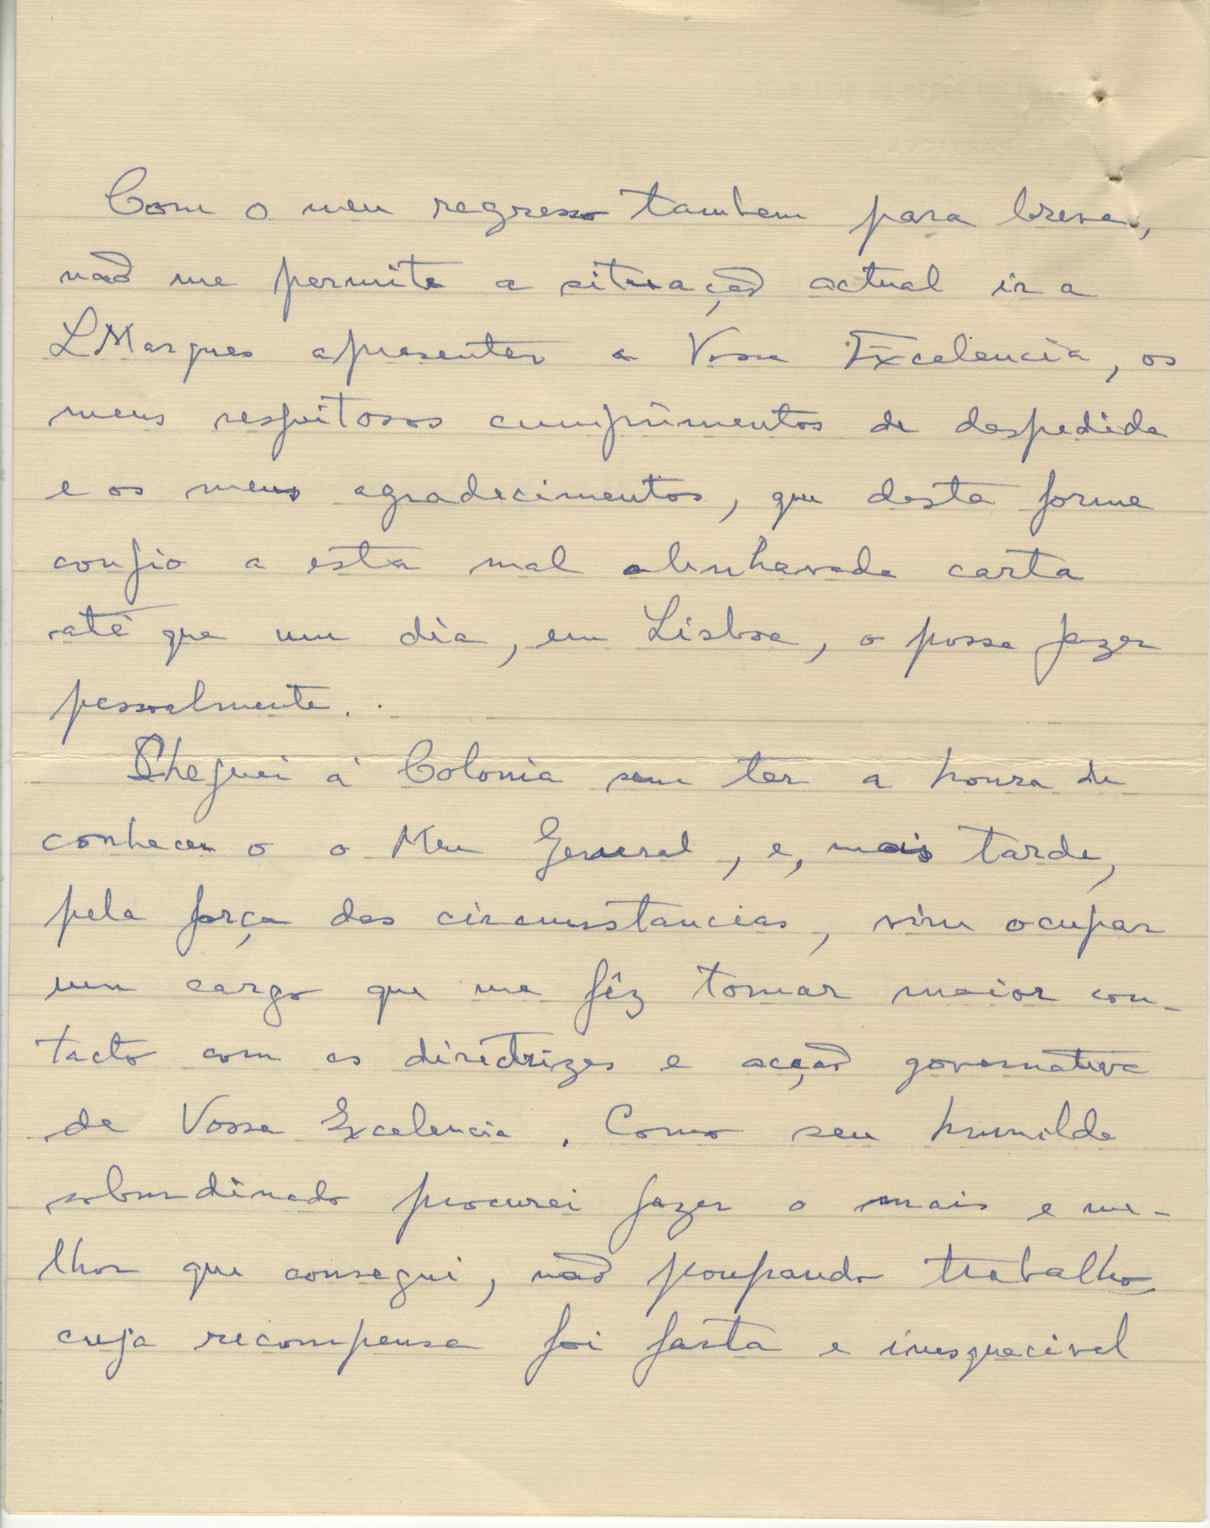 Com o meu regresso tambem para breve,
não me permite a situação actual ir a
LMarques apresentar a Vossa Excelencia, os
meus respeitosos cumprimentos de despedida
e os meus agradecimentos, que desta forma
confio a esta mal alinhavada carta
até que um dia, em Lisboa, o possa fazer
pessoalmente.
Cheguei á Colonia sem ter a honra de
conhecer o o Meu General, e, mais tarde,
pela força das circunstancias, vim ocupar
um cargo que me fêz tomar maior con-
tacto com as directrizes e acção governativa
de Vossa Excelencia. Como seu humilde
subordinado procurei fazer o mais e me-
lhor que consegui, não poupando trabalho
cuja recompensa foi farta e inesquecivel